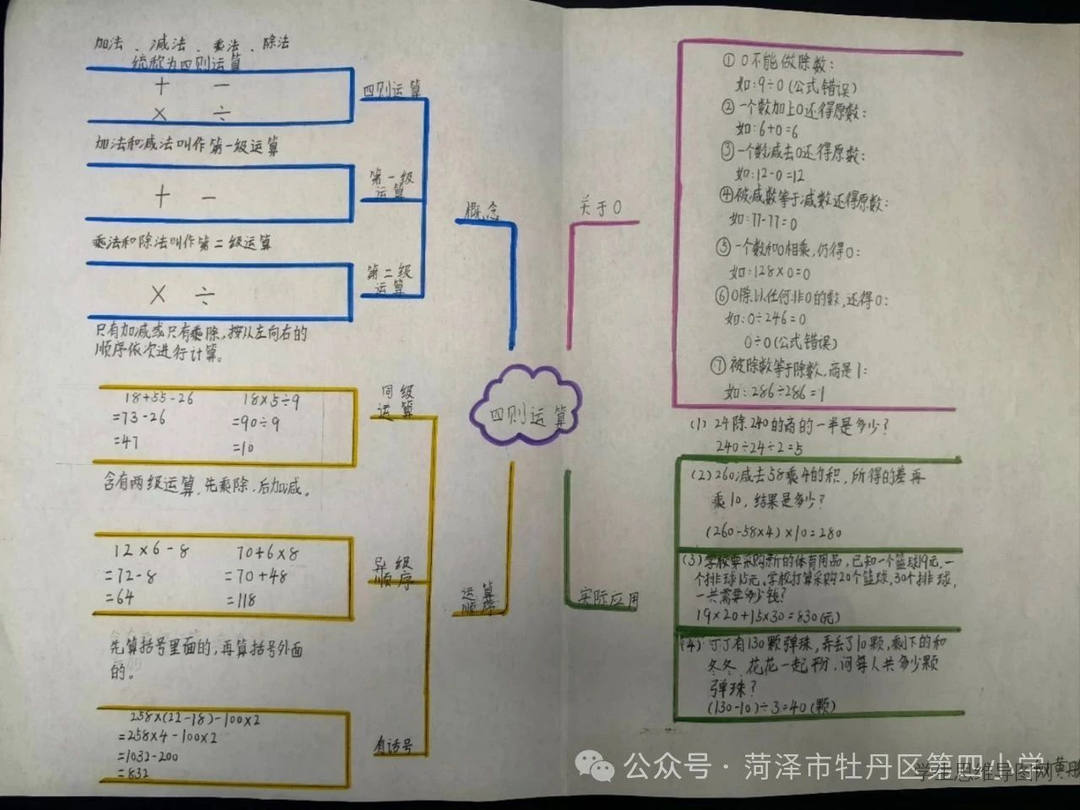 加法、减法、乘法、除法
统称为四则运算
+ -
× ÷
四则运算
加法和减法叫作第一级运算
+ -
第一级
运算
乘法和除法叫作第二级运算
× ÷
第二级
运算
概念
只有加减或只有乘除,按从左向右的
顺序依次进行计算。
18+55-26
=73-26
=47
18×5÷9
=90÷9
=10
同级
运算
含有两级运算,先乘除,后加减。
12×6-8
=72-8
=64
70+6×8
=70+48
=118
异级
顺序
先算括号里面的,再算括号外面
的。
258×(22-18)-100×2
=258×4-100×2
=1032-200
=832
有括号
运算
顺序
四则运算
关于0
①0不能做除数:
如:9÷0(公式错误)
②一个数加上0还得原数:
如:6+0=6
③一个数减去0还得原数:
如:12-0=12
④被减数等于减数还得原数:
如:77-77=0
⑤一个数和0相乘,仍得0:
如:128×0=0
⑥0除以任何非0的数,还得0:
如:0÷246=0
0÷0(公式错误)
⑦被除数等于除数,商是1:
如:286÷286=1
实际应用
(1)24除240的商的一半是多少?
240÷24÷2=5
(2)260减去58乘4的积,所得的差再
乘10,结果是多少?
(260-58×4)×10=280
(3)学校要采购新的体育用品,已知一个篮球19元,一
个排球15元,学校打算采购20个篮球,30个排球,
一共需要多少钱?
19×20+15×30=830(元)
(4)丁丁有130颗弹珠,弄丢了10颗,剩下的和
冬冬、花花一起平分,问每人共多少颗
弹珠?
(130-10)÷3=40(颗)
公众号·菏泽市牡丹区第四小学
学生思维导图网